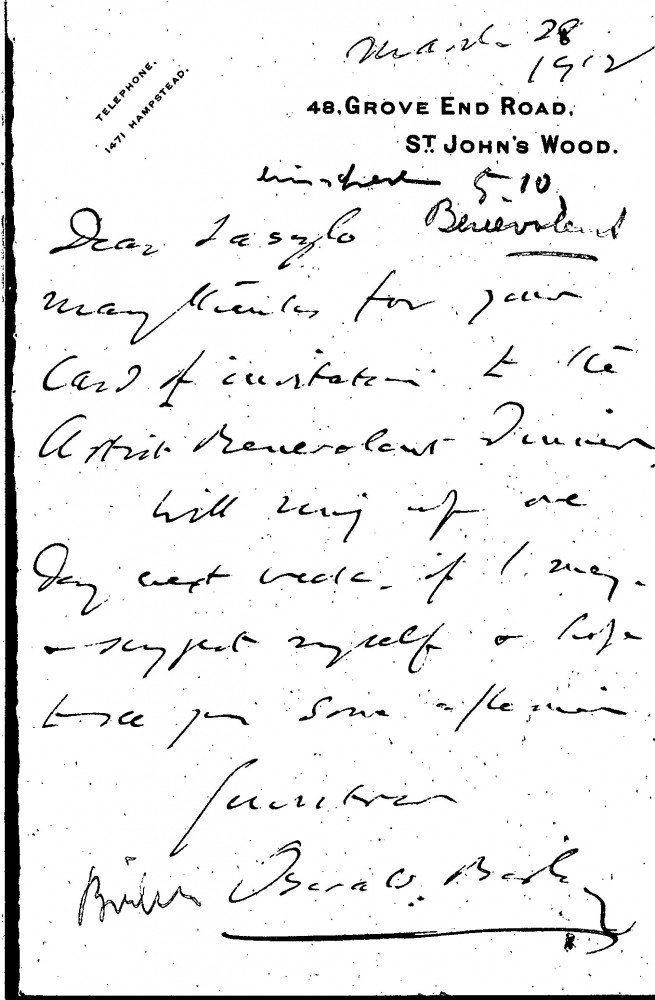 March 28
1912
TELEPHONE.
1471 HAMPSTEAD.
48, GROVE END ROAD,
ST. JOHN'S WOOD.
5 10
Benevolent
Dear Laszlo
Many thanks for your
Card of invitation to the
Artist Benevolent Dinner
Will ring up one
Day next week, if I may.
& suggest myself & hope
to see you some afternoon
Yours ever
Oswald Birley
Birley